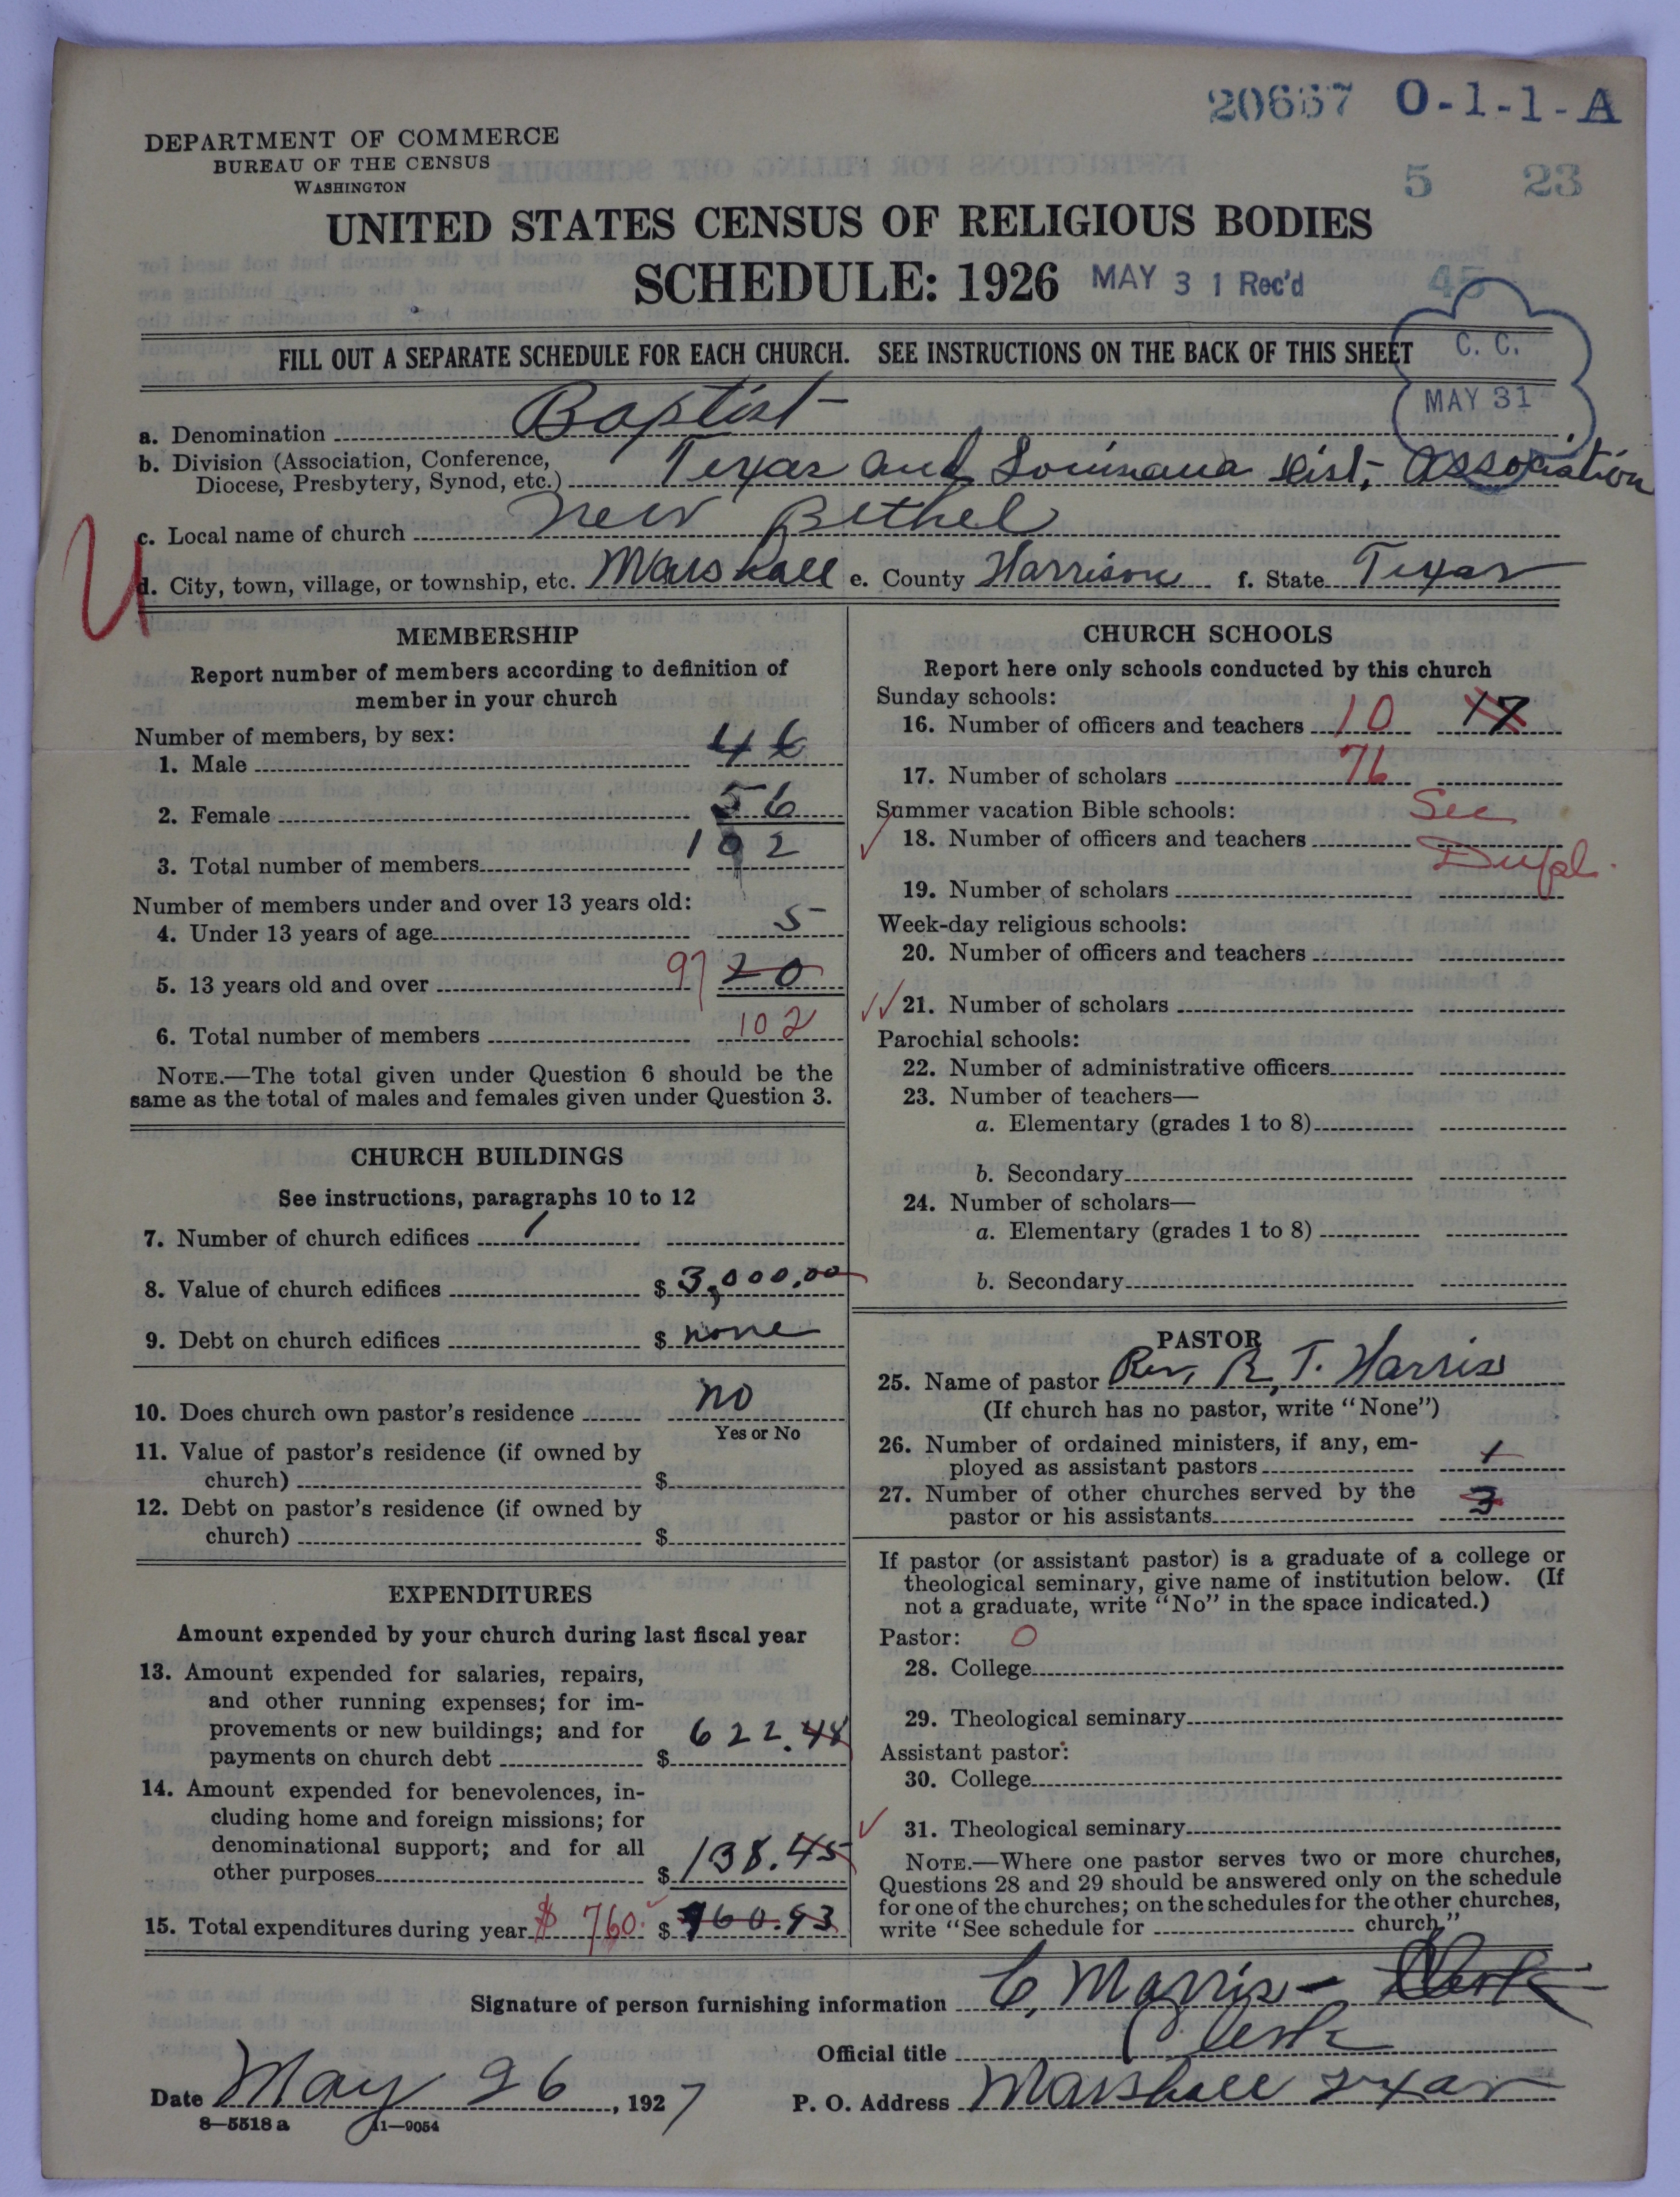 20667 O-1-1-A
DEPARTMENT OF COMMERCE
BUREAU OF THE CENSUS
WASHINGTON
5 23
UNITED STATES CENSUS OF RELIGIOUS BODIES
SCHEDULE: 1926 MAY 31 Rec'd 45
FILL OUT A SEPARATE SCHEDULE FOR EACH CHURCH. SEE INSTRUCTIONS ON THE BACK OF THIS SHEET
C. C.
MAY 31
a. Denomination Baptist
b. Division (Association, Conference,
Diocese, Presbytery, Synod, etc.) Texas and Louisiana Dist, Association
c. Local name of church New Bethel
U
d. City, town, village, or township, etc. Marshall e. County Harrison f. State Texas
MEMBERSHIP
Report number of members according to definition of
member in your church
Number of members, by sex:
1. Male 46
2. Female 56
3. Total number of members 102
Number of members under and over 13 years old:
4. Under 13 years of age 5
5. 13 years old and over 97 20
6. Total number of members 102
NOTE.—The total given under Question 6 should be the
same as the total of males and females given under Question 3.
CHURCH BUILDINGS
See instructions, paragraphs 10 to 12
7. Number of church edifices 1
8. Value of church edifices $ 3,000.00
9. Debt on church edifices $ none
10. Does church own pastor's residence no
Yes or No
11. Value of pastor's residence (if owned by
church) $
12. Debt on pastor's residence (if owned by
church) $
EXPENDITURES
Amount expended by your church during last fiscal year
13. Amount expended for salaries, repairs,
and other running expenses; for im-
provements or new buildings; and for
payments on church debt $ 622.48
14. Amount expended for benevolences, in-
cluding home and foreign missions; for
denominational support; and for all
other purposes $ 138.45
15. Total expenditures during year $ 760. $ 960.93
CHURCH SCHOOLS
Report here only schools conducted by this church
Sunday schools:
16. Number of officers and teachers 10 17
17. Number of scholars 76
Summer vacation Bible schools: See
18. Number of officers and teachers Dupl.
19. Number of scholars
Week-day religious schools:
20. Number of officers and teachers
21. Number of scholars
Parochial schools:
22. Number of administrative officers
23. Number of teachers—
a. Elementary (grades 1 to 8)
b. Secondary
24. Number of scholars—
a. Elementary (grades 1 to 8)
b. Secondary
PASTOR
25. Name of pastor Rev. R. T. Harris
(If church has no pastor, write "None")
26. Number of ordained ministers, if any, em-
ployed as assistant pastors 1
27. Number of other churches served by the
pastor or his assistants 3
If pastor (or assistant pastor) is a graduate of a college or
theological seminary, give name of institution below. (If
not a graduate, write "No" in the space indicated.)
Pastor: O
28. College
29. Theological seminary
Assistant pastor:
30. College
31. Theological seminary
NOTE.—Where one pastor serves two or more churches,
Questions 28 and 29 should be answered only on the schedule
for one of the churches; on the schedules for the other churches,
write "See schedule for church."
Signature of person furnishing information C. Morris - Clerk
Official title Clerk
Date May 26, 1927 P. O. Address Marshall Texas
8—5518 a 11—9054